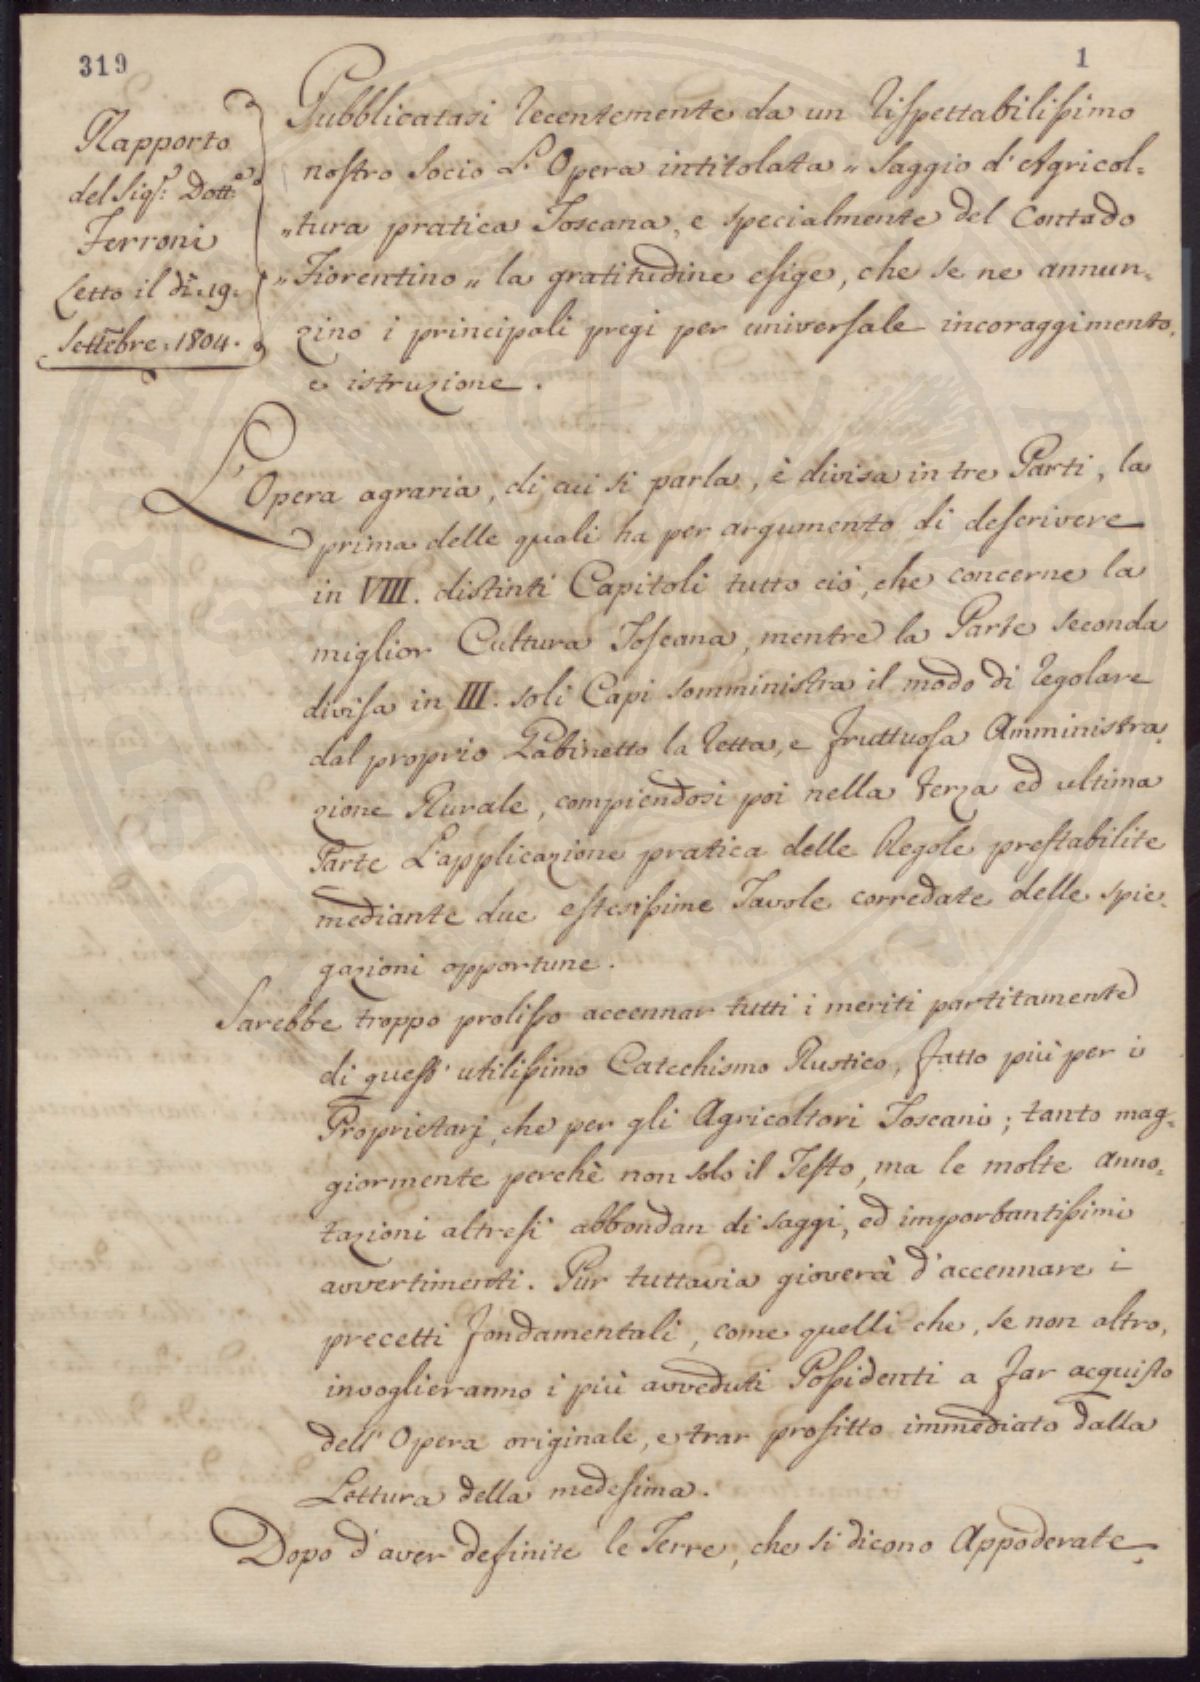 319
1
Rapporto
del Sigr. Dottr.
Ferroni
Letto il dì 19.
Settēbre 1804.
Pubblicatasi recentemente da un rispettabilissimo
nostro Socio L'Opera intitolata „ Saggio d'Agricol=
„tura pratica Toscana, e specialmente del Contado
„Fiorentino „ la gratitudine esige, che se ne annun=
zino i principali pregi per universale incoraggimento,
e istruzione.
L'Opera agraria, di cui si parla, è divisa in tre Parti, la
prima delle quali ha per argumento di descrivere
in VIII. distinti Capitoli tutto ciò, che concerne la
miglior Cultura Toscana, mentre la Parte seconda
divisa in III. soli Capi somministra il modo di regolare
dal proprio Gabinetto la retta, e fruttuosa Amministra=
zione Rurale, compiendosi poi nella terza ed ultima
Parte L'applicazione pratica delle Regole prestabilite
mediante due estesissime Tavole corredate delle spie=
gazioni opportune.
Sarebbe troppo prolisso accennar tutti i meriti partitamente
di quest' utilissimo Catechismo Rustico, fatto più per i
Proprietarj, che per gli Agricoltori Toscani; tanto mag=
giormente perchè non solo il Testo, ma le molte anno=
tazioni altresì abbondan di saggi, ed importantissimi
avvertimenti. Pur tuttavia gioverà d'accennare i
precetti fondamentali, come quelli che, se non altro,
invoglieranno i più avveduti Possidenti a far acquisto
dell' Opera originale, e trar profitto immediato dalla
Lettura della medesima.
Dopo d'aver definite le Terre, che si dicono Appoderate,